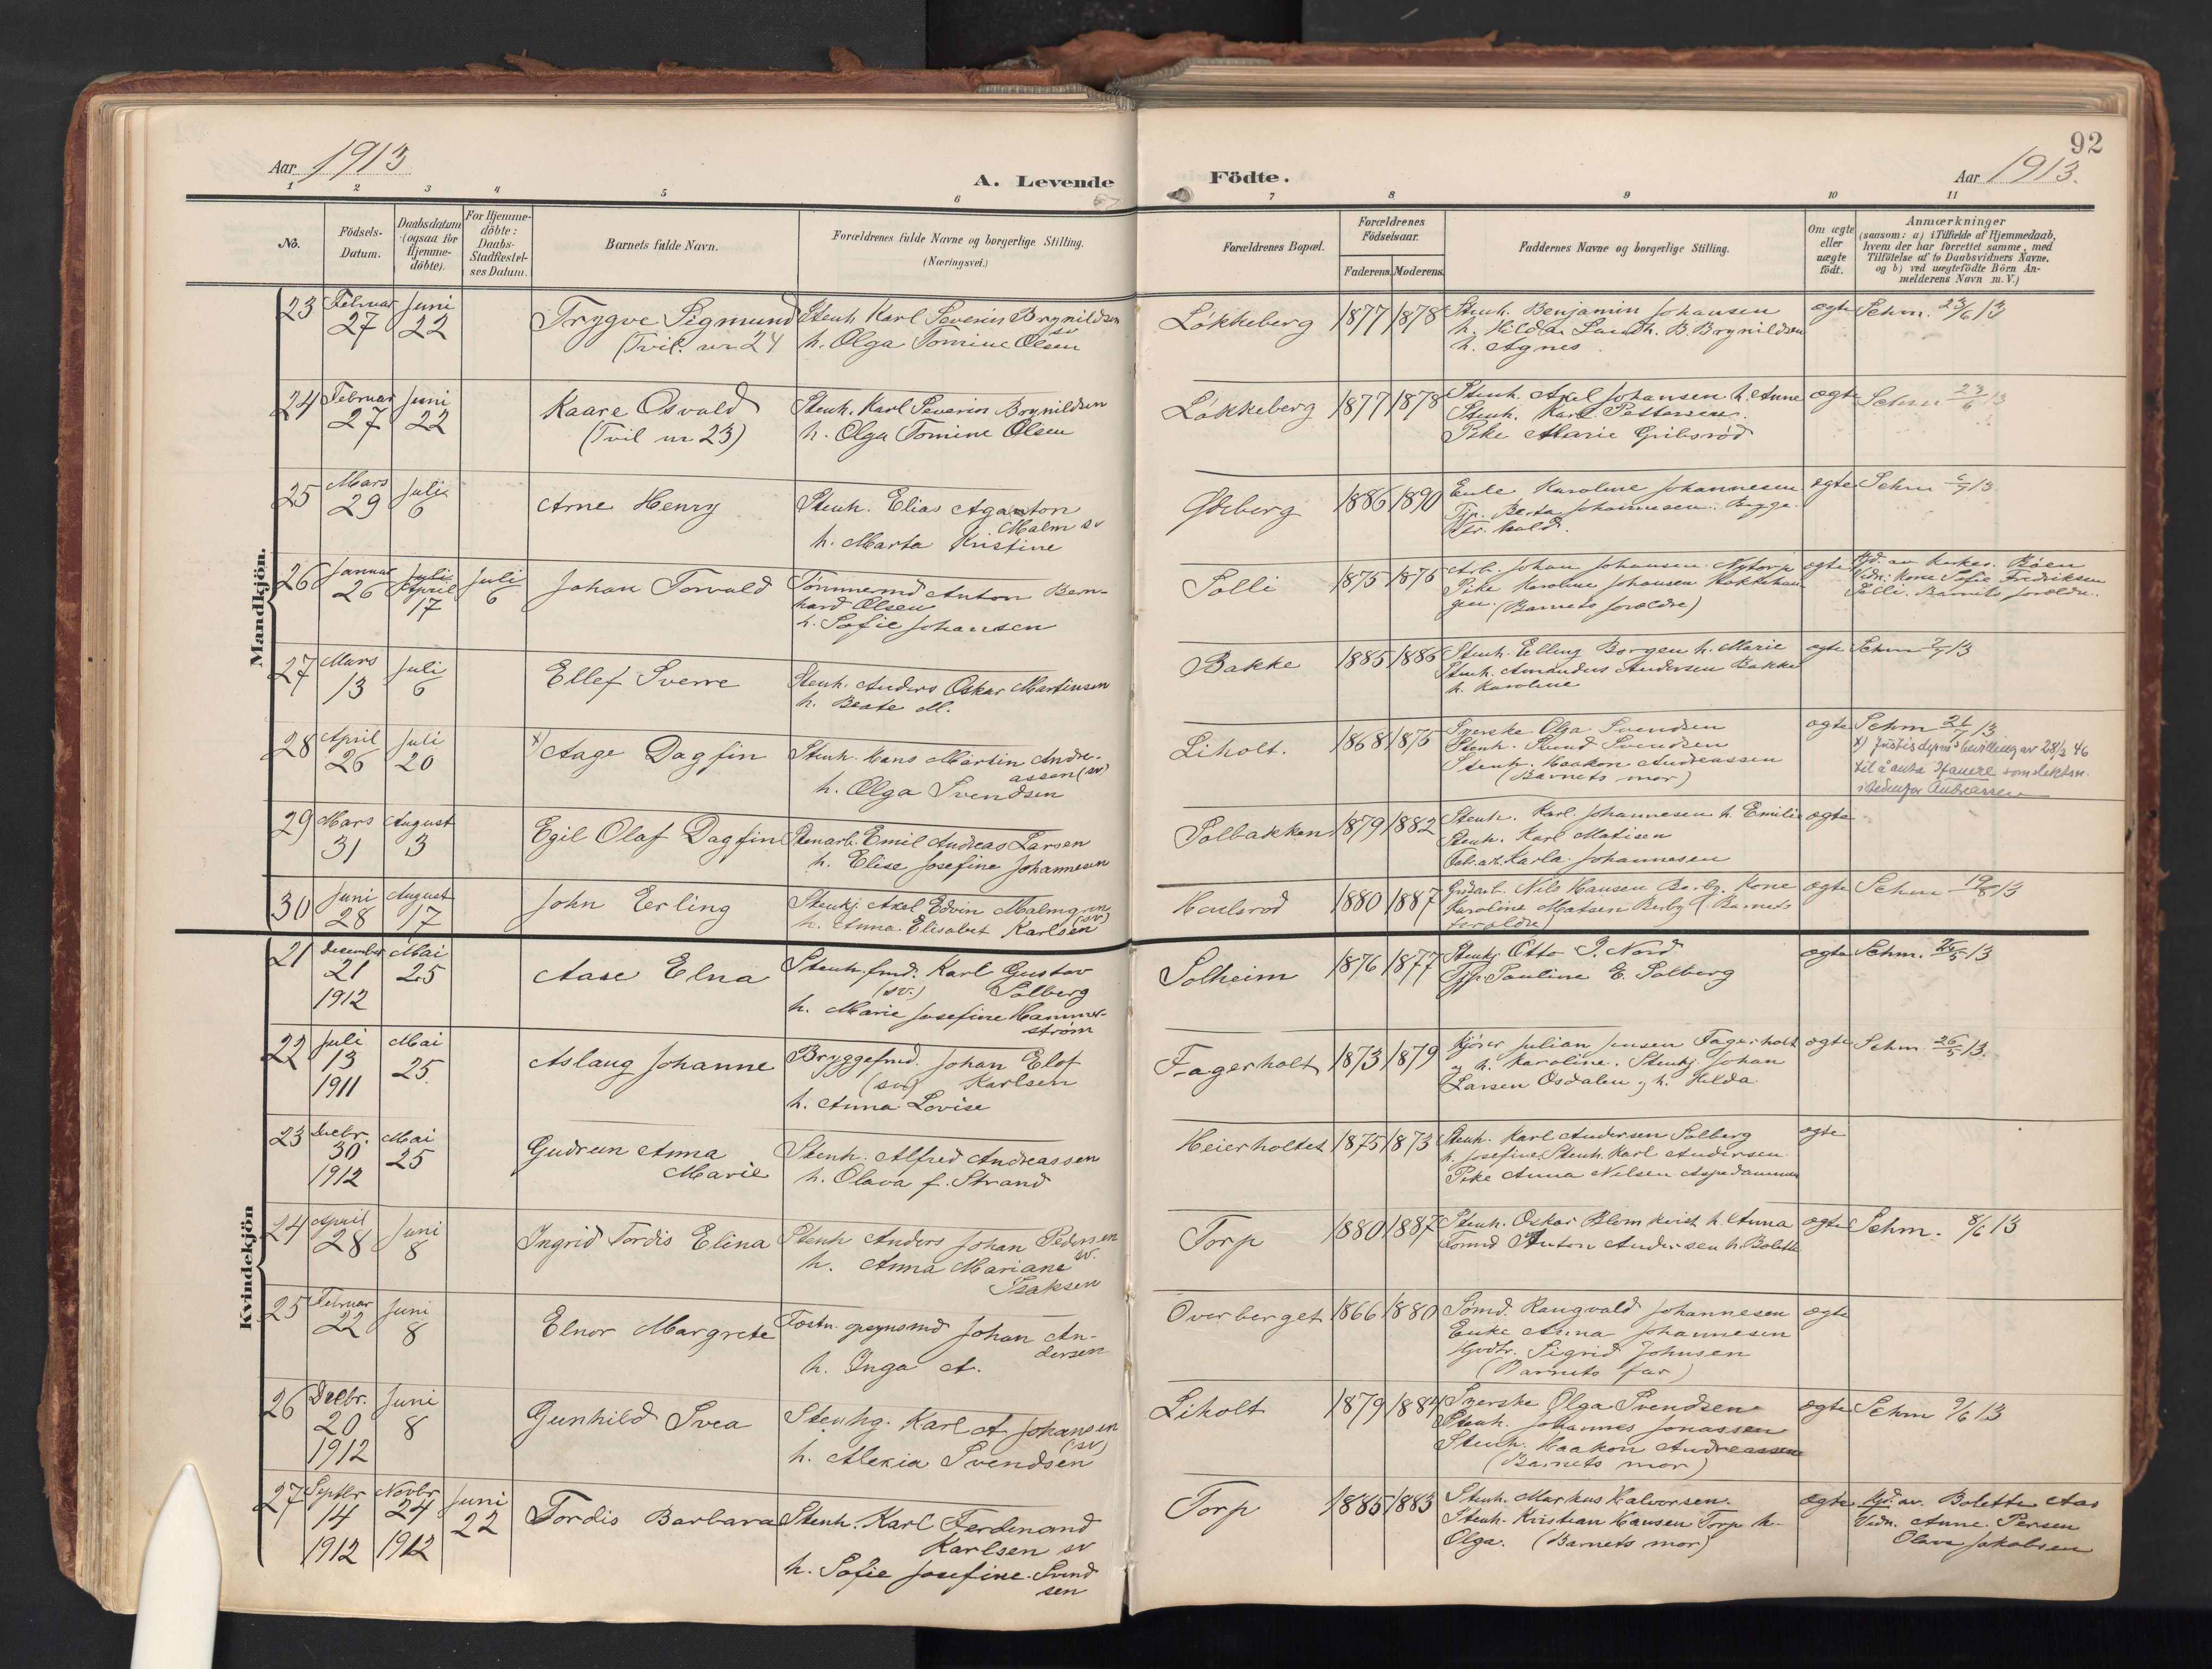 92
Aar 1913
A. Levende Födte.
Aar 1913.
1 2 3 4 5 6 7 8 9 10 11
No.
Födsels-
Datum.
Daabsdatum
(ogsaa for
Hjemme-
döbte).
For Hjemme-
döbte:
Daabs-
Stadfæstel-
ses Datum.
Barnets fulde Navn.
Forældrenes fulde Navne og borgerlige Stilling.
(Næringsvei.)
Forældrenes Bopæl.
Forældrenes
Födselsaar.
Faderens. Moderens.
Faddernes Navne og borgerlige Stilling.
Om ægte
eller
uægte
födt.
Anmærkninger
(saasom: a) i Tilfælde af Hjemmedaab,
hvem der har forrettet samme, med
Tilföielse af to Daabsvidners Navne,
og b) ved uægtefödte Börn An-
melderens Navn m. V.)
Mandkjön.
23 Februar 27 Juni 22
Trygve Sigmund
(Tvil. nr. 24
Stenh. Karl Severin Brynildsen
sv
h. Olga Tomine Olsen
Løkkeberg 1877 1878
Stenh. Benjamin Johansen
h. Hilda. Landh. B. Brynildsen
h. Agnes
ægte Schm. 23/6 13
24 Februar 27 Juni 22
Kaare Osvald
(Tvil nr 23)
Stenh. Karl Severin Brynildsen
h. Olga Tomine Olsen
Løkkeberg 1877 1878
Stenh. Axel Johansen h. Anne
Stenh. Karl Pettersen.
Pike Marie Gribsrød
ægte Schm 23/6 13
25 Mars 29 Juli 6
Arne Henry
Stenh. Elias Agaton
Malm sv
h. Marta Kristine
1886 1890
Enke Karoline Johannesen
Berta Johannesen. Bygge
ægte Schm 13
26 Januar 26 Juli April 17 Juli 6
Johan Torvald
Tømmermd Anton Bern-
hard Olsen
h. Sofie Johansen
Solli 1875 1876
Arb. Johan Johansen. Nytorp
Pike Karoline Johansen
gen. (Barnets forældre)
ægte Hjd. av Kirkes. Bøen
Vidn: Kone Sofie Fredriksen
Solli. Barnets forældre.
27 Mars 13 Juli 6
Ellef Sverre
Stenh. Anders Oskar Martinsen
h. Beate M.
Bakke 1885 1886
Stenh. Elling Borgen h. Marie
Stenh. Amandus Andersen Bakke
h. Karoline
ægte Schm 7/7 13
28 April 26 Juli 20
x) Aage Dagfin
Stenh. Hans Martin Andre-
assen (sv)
h. Olga Svendsen
Liholt. 1868 1875
Syerske Olga Svendsen
Stenh. Svendsen
Stenh. Haakon Andreassen
(Barnets mor)
ægte Schm 21/7 13
x) Justisdepm's bevilling av 28/2 46
til å anta som slektsn.
istedenfor Andreassen
29 Mars 31 August 3
Egil Olaf Dagfin
Stenarb. Emil Andreas Larsen
h. Elise Josefine Johannesen
Solbakken 1879 1882
Stenh. Karl Johannesen h. Emilie
Stenh. Karl Matisen
Fabr.arb. Karla Johannesen
ægte
30 Juni 28 August 17
John Erling
Stenkj Axel Edvin Malmgren
(sv)
h. Anna Elisabet Karlsen
1880 1887
Grdarb. Nils Hansen Berby. Kone
Karoline Matsen Berby (Barnets
forældre)
ægte Schm 19/8 13
Kvindekjön
21 December 21 1912 Mai 25
Aase Elna
Stenh. fmd. Karl Gustav
(sv.) Solberg
h. Marie Josefine Hammer-
strøm
Solheim 1876 1877
Stenkj Otto J. Nord
Pauline E. Solberg
ægte Schm. 26/5 13
22 Juli 13 1911 Mai 25.
Aslaug Johanne
Bryggefmd. Johan Elof
(sv) Karlsen
h. Anna Lovise
Fagerholt 1873 1879
Kjører Julian Jensen Fagerholt
og h. Karoline. Stenkj Johan
Larsen Osdalen, h. Hilda.
ægte Schm. 26/5 13.
23 Decbr. 30 1912 Mai 25
Gudrun Anna
Marie
Stenh. Alfred Andreassen
h. Olava f. Strand
Heierholtet 1875 1873
Stenh. Karl Andersen Solberg
h. Josefine. Stenh. Karl Andersen
Pike Anna Nilsen Aspedammen
ægte
24 April 28 Juni 8
Ingrid Tordis Elina
Stenh Anders Johan Pedersen
sv.
h. Anna Mariane
Isaksen
Torp 1880 1887
Stenh. Oskar Blomkvist h. Anna
Tømmd Anton Andersen h. Bolette
ægte Schm. 8/6 13
25 Februar 22 Juni 8
Elnor Margrete
Tostn. opsynsmd Johan An-
dersen
h. Inga A.
Overberget 1866 1880
Sømd. Rangvald Johannesen
Enke Anna Johannesen
Sigrid Johnsen
(Barnets far)
ægte
26 Decbr. 20 1912 Juni 8
Gunhild Svea
Stenhg. Karl A Johansen
(sv)
h. Alexia Svendsen
Liholt 1879 1884
Syerske Olga Svendsen
Stenh. Johannes Jonassen
Stenh. Haakon Andreassen
(Barnets mor)
ægte Schm 9/6 13
27 Septbr 14 1912 Novbr 24 1912 Juni 22
Tordis Barbara
Stenh. Karl Ferdinand
Karlsen sv
h. Sofie Josefine Svend
sen
Torp 1885 1883
Stenh. Markus Halvorsen.
Stenh. Kristian Hansen Torp h.
Olga. (Barnets mor)
ægte Hjd. av. Bolette Aas
Vidn. Anne Persen
Olava Jakobsen